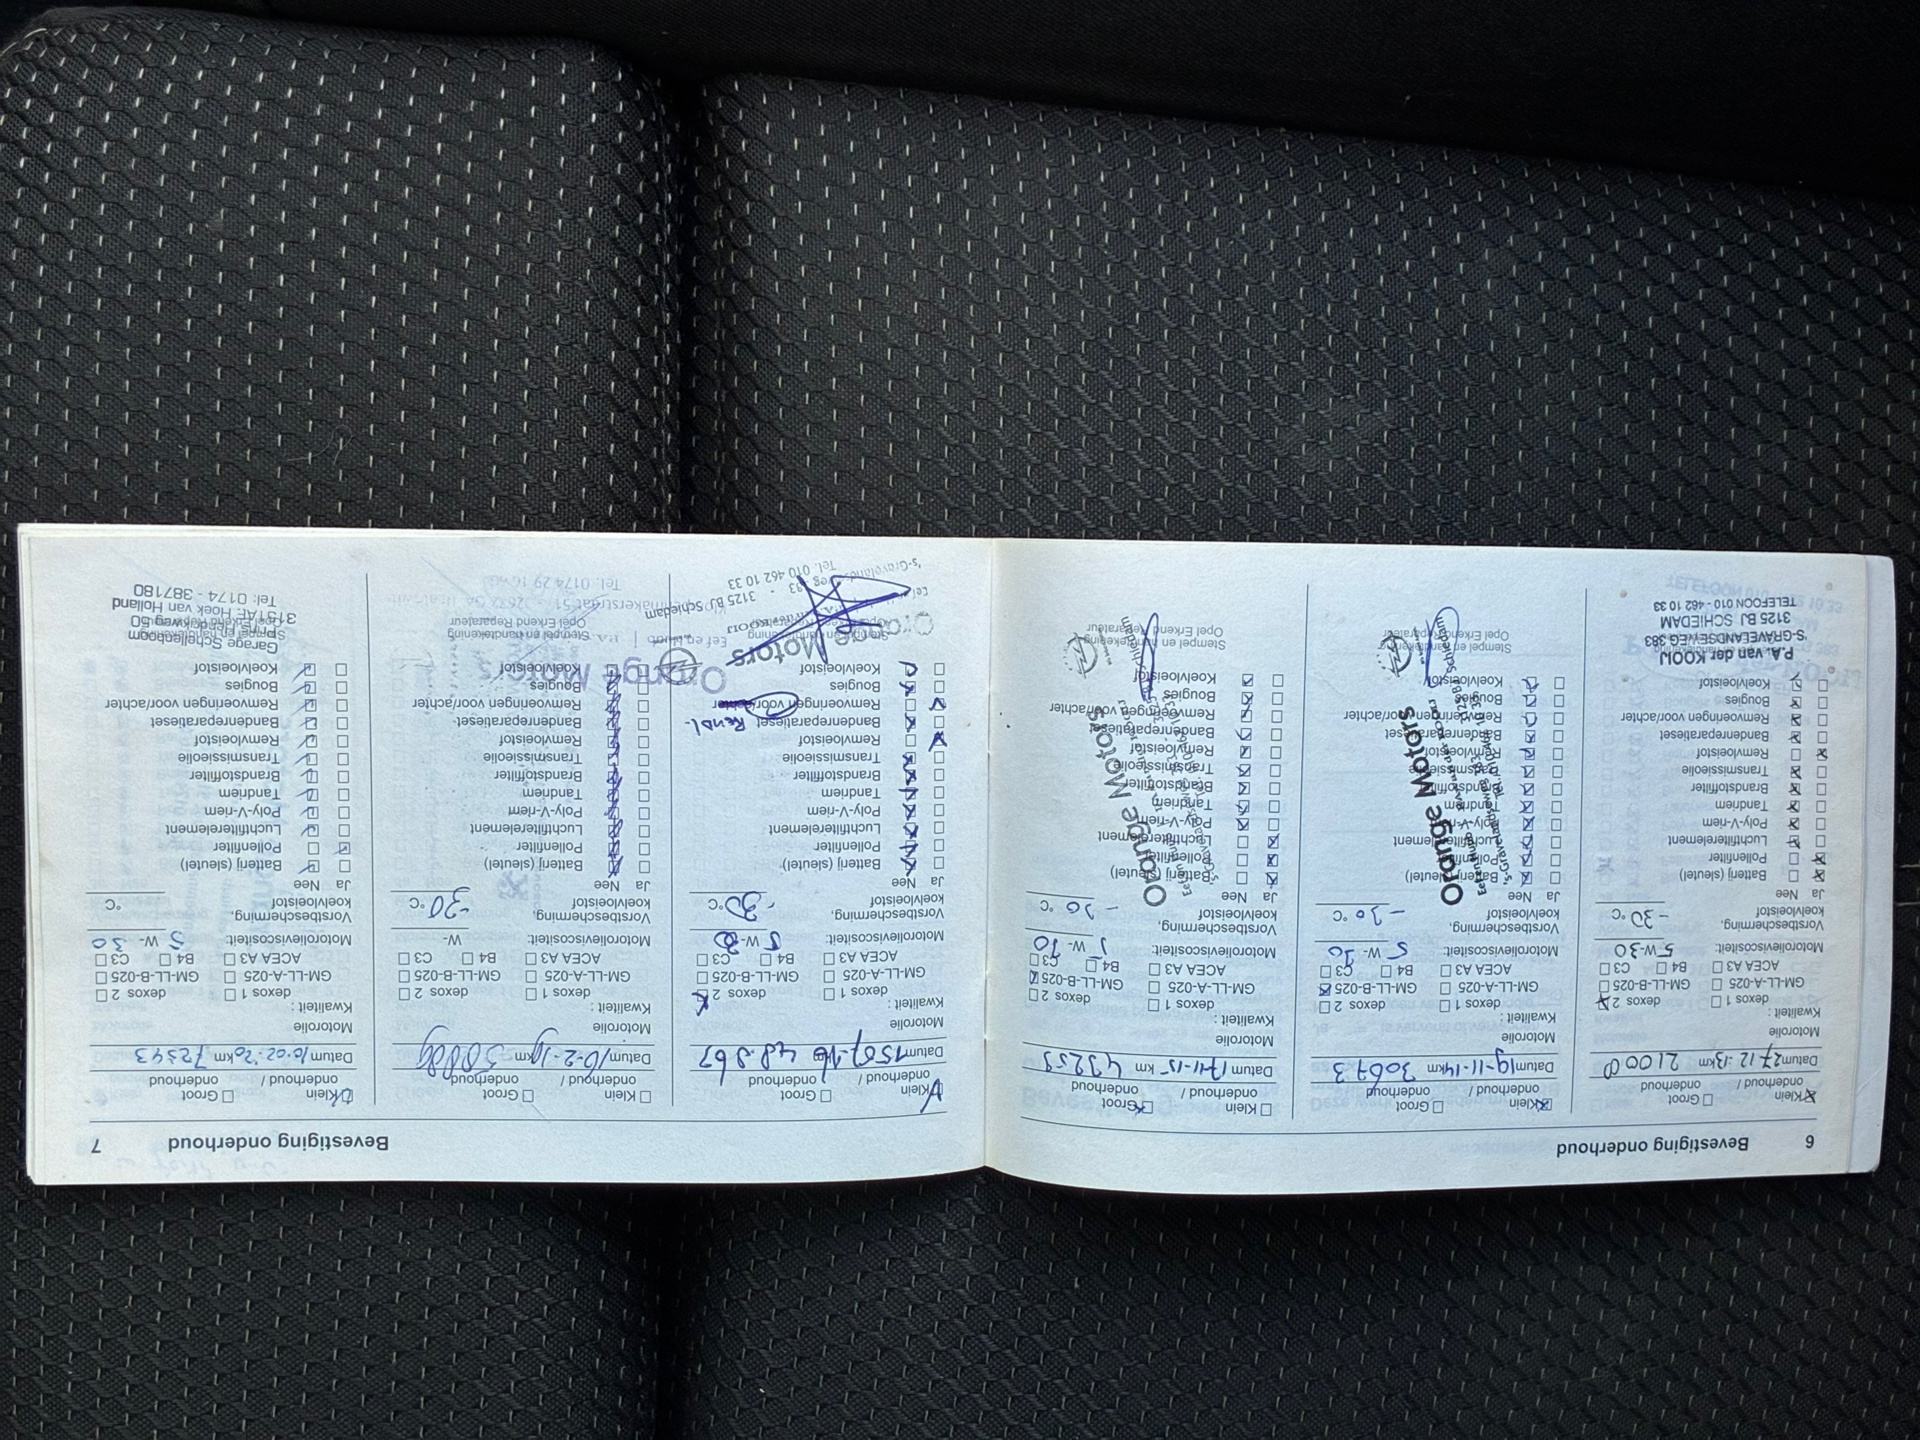 6 Bevestiging onderhoud
Klein onderhoud / Groot onderhoud
Datum 27-12-13 km 21000
Motorolie
Kwaliteit :
dexos 1 dexos 2
GM-LL-A-025 GM-LL-B-025
ACEA A3 B4 C3
Motorolieviscositeit: 5 W-30
Vorstbescherming, koelvloeistof -30 °C
Ja Nee
Batterij (sleutel)
Pollenfilter
Luchtfilterelement
Poly-V-riem
Tandriem
Brandstoffilter
Transmissieolie
Remvloeistof
Bandenreparatieset
Remvoeringen voor/achter
Bougies
Koelvloeistof
P.A. van der KOOIJ
'S-GRAVELANDSEWEG 383
3125 BJ SCHIEDAM
TELEFOON 010 - 462 10 33
Klein onderhoud / Groot onderhoud
Datum 19-11-14 km 30673
Motorolie
Kwaliteit :
dexos 1 dexos 2
GM-LL-A-025 GM-LL-B-025
ACEA A3 B4 C3
Motorolieviscositeit: 5 W-
Vorstbescherming, koelvloeistof -30 °C
Ja Nee
Batterij (sleutel)
Pollenfilter
Luchtfilterelement
Poly-V-riem
Tandriem
Brandstoffilter
Transmissieolie
Remvloeistof
Bandenreparatieset
Remvoeringen voor/achter
Bougies
Koelvloeistof
Stempel en handtekening
Opel Erkend Reparateur
Orange Motors
Schiedam
Klein onderhoud / Groot onderhoud
Datum 17-11-15 km 43259
Motorolie
Kwaliteit :
dexos 1 dexos 2
GM-LL-A-025 GM-LL-B-025
ACEA A3 B4 C3
Motorolieviscositeit: W-
Vorstbescherming, koelvloeistof -30 °C
Ja Nee
Batterij (sleutel)
Pollenfilter
Luchtfilterelement
Poly-V-riem
Tandriem
Brandstoffilter
Transmissieolie
Remvloeistof
Bandenreparatieset
Remvoeringen voor/achter
Bougies
Koelvloeistof
Stempel en handtekening
Opel Erkend Reparateur
Orange Motors
Bevestiging onderhoud 7
Klein onderhoud / Groot onderhoud
Datum km 48.867
Motorolie
Kwaliteit :
dexos 1 dexos 2
GM-LL-A-025 GM-LL-B-025
ACEA A3 B4 C3
Motorolieviscositeit: 5 W-30
Vorstbescherming, koelvloeistof -30 °C
Ja Nee
Batterij (sleutel)
Pollenfilter
Luchtfilterelement
Poly-V-riem
Tandriem
Brandstoffilter
Transmissieolie
Remvloeistof
Bandenreparatieset
Remvoeringen voor/achter
Bougies
Koelvloeistof
Stempel en handtekening
Orange Motors
3125 BJ Schiedam
Tel. 010 462 10 33
Klein onderhoud / Groot onderhoud
Datum km
Motorolie
Kwaliteit :
dexos 1 dexos 2
GM-LL-A-025 GM-LL-B-025
ACEA A3 B4 C3
Motorolieviscositeit: W-
Vorstbescherming, koelvloeistof -30 °C
Ja Nee
Batterij (sleutel)
Pollenfilter
Luchtfilterelement
Poly-V-riem
Tandriem
Brandstoffilter
Transmissieolie
Remvloeistof
Bandenreparatieset
Remvoeringen voor/achter
Bougies
Koelvloeistof
Orange Motors
Stempel en handtekening
Opel Erkend Reparateur
Klein onderhoud / Groot onderhoud
Datum 10-02-'20 km 72343
Motorolie
Kwaliteit :
dexos 1 dexos 2
GM-LL-A-025 GM-LL-B-025
ACEA A3 B4 C3
Motorolieviscositeit: 5 W- 30
Vorstbescherming, koelvloeistof °C
Ja Nee
Batterij (sleutel)
Pollenfilter
Luchtfilterelement
Poly-V-riem
Tandriem
Brandstoffilter
Transmissieolie
Remvloeistof
Bandenreparatieset
Remvoeringen voor/achter
Bougies
Koelvloeistof
Garage Schelleboom
Hoek van Holland
Tel: 0174 - 387180